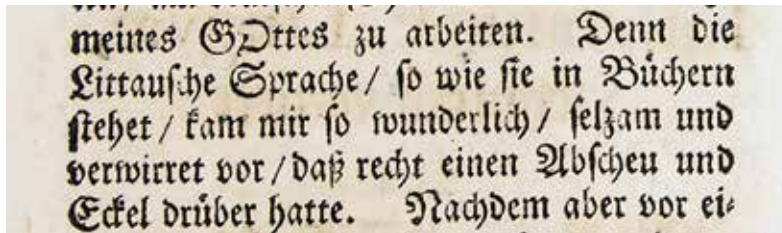 meines GOttes zu arbeiten. Denn die
Littausche Sprache / so wie sie in Büchern
stehet / kam mir so wunderlich / selzam und
verwirret vor / daß recht einen Abscheu und
Eckel drüber hatte. Nachdem aber vor ei⸗